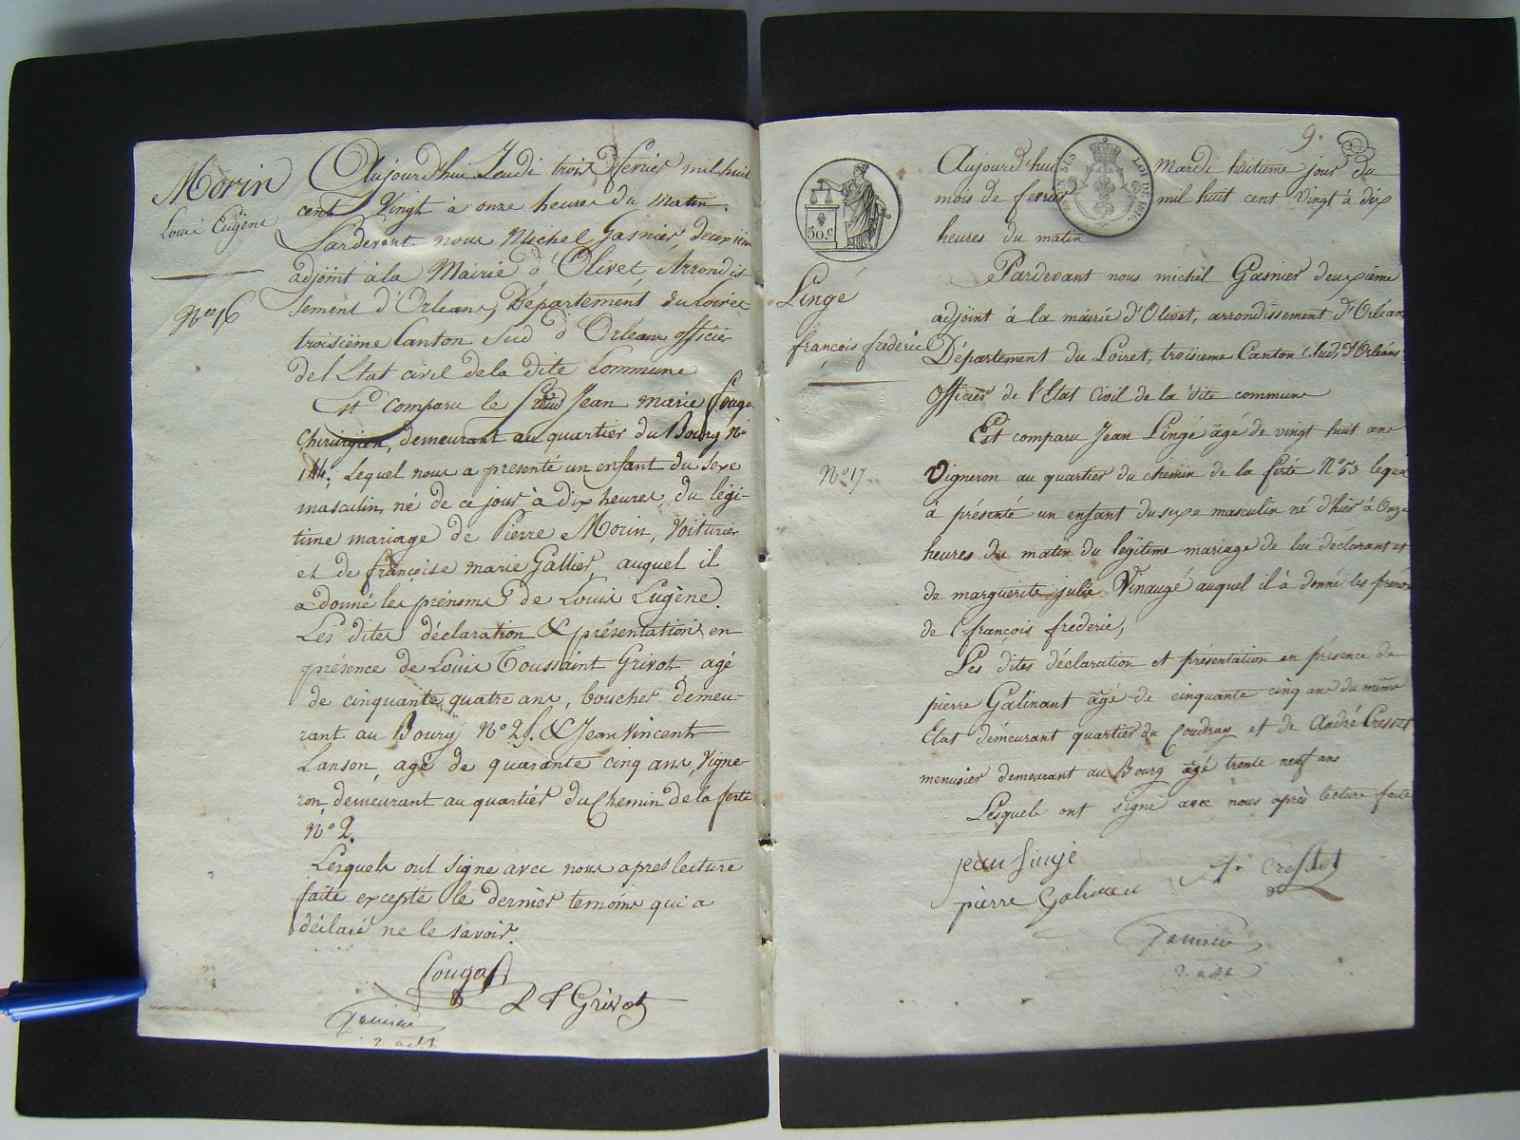 Morin
Louis Eugène
N° 16
Aujourd'hui Jeudi trois Fevrier mil huit
cent Vingt à onze heures du matin.
Pardevant nous Michel Gasnier, deuxième
adjoint à la Mairie d'Olivet, Arrondis
sement d'Orleans, Département du Loiret
troisième Canton Sud d'Orléans officier
de l'Etat civil de la dite Commune
Est comparu le Jean marie
Chirurgien, demeurant au quartier du Bourg N°
144, Lequel nous a presenté un enfant du sexe
masculin, né de ce jour à dix heures du légi-
time mariage de Pierre Morin, Voiturier
et de françoise marie Gallier, auquel il
a donné les prénoms de Louis Eugène.
Les dites déclaration & présentation en
présence de Louis Toussaint Grivot agé
de cinquante quatre ans, boucher demeu-
rant au Bourg N° & Jean Vincent
Lanson, agé de quarante cinq ans, Vigne-
ron demeurant au quartier du Chemin de la ferté
N° 2.
Lesquels ont signe avec nous apres lecture
faite excepté le dernier temoins qui a
déclaré ne le savoir.
L T Grivot
9.
50 c
LOUIS
Lingé
françois fréderic
N° 17
Aujourd'hui Mardi huitième jour du
mois de fevrier mil huit cent Vingt à dix
heures du matin
Pardevant nous michel Gasnier deuxième
adjoint à la mairie d'Olivet, arrondissement d'Orléans
Département du Loiret, troisieme Canton Sud, d'Orléans
Officier de l'Etat Civil de la dite commune
Est comparu Jean Lingé âgé de vingt huit ans
Vigneron au quartier du chemin de la ferté N° 53 lequel
a présenté un enfant du sexe masculin né d'hier à Onze
heures du matin du légitime mariage de lui déclarant et
de marguerite julie Vinaugé auquel il à donné les prénoms
de françois frederic,
Les dites déclaration et présentation en présence de
pierre Galinant âgé de cinquante cinq ans du même
Etat démeurant quartier du Coudray et de André Cresset
menusier demeurant au Bourg âgé trente neuf ans
Lesquels ont signé avec nous après lecture faite
jean Linje
pierre